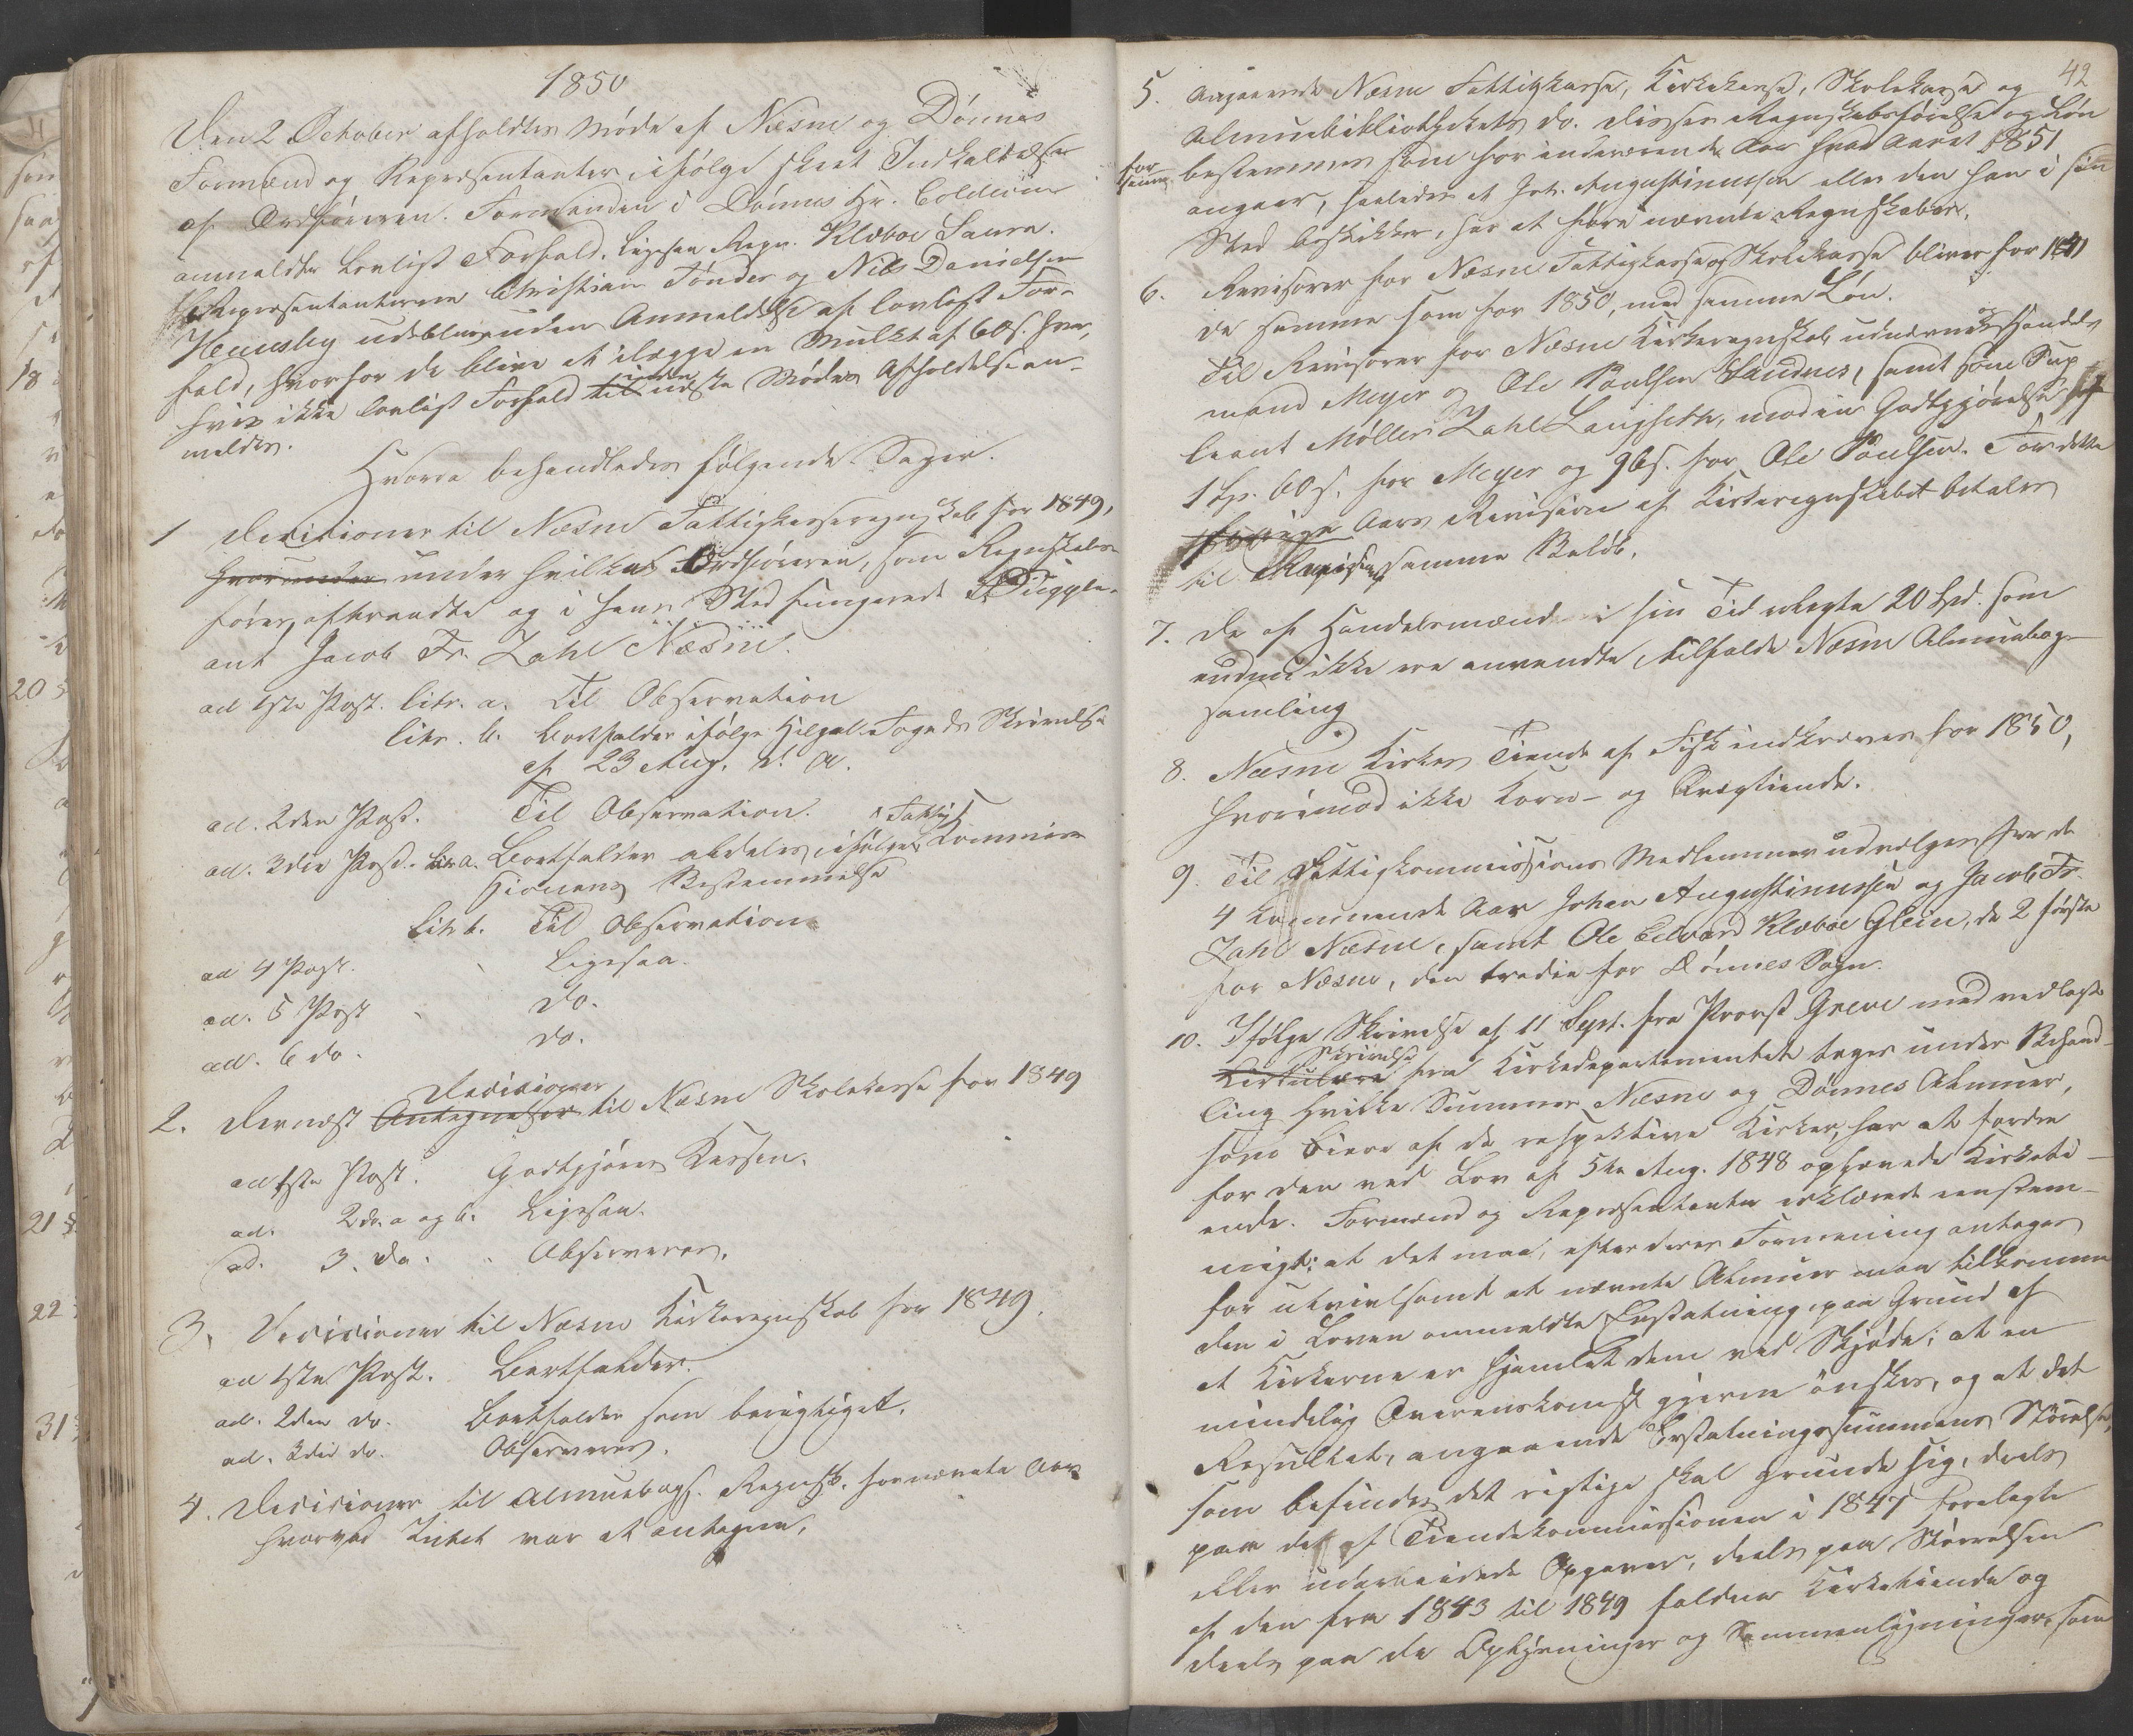 1850
Den 2 October afholdtes Møde af Næsne og Dønnes
Formænd og Repræsentanter, ifølge skeet Indkaldelse
af Ordføreren. Formanden i Dønnes Hr. Coldevin
anmeldte lovligt Forfald, ligesaa Repr. Klæboe Saura.
Repræsentanterne Christian Tønder og Niels Danielsen
Hemnsby udebleve uden Anmeldelse af lovligt For-
fald, hvorfor de blive at ilægge en Mulkt af 60 s. hver,
hvis ikke lovligt Forfald til inden næste Mødes Afholdelse an-
meldes.
Hvorda behandledes følgende Sager.
1 Decisioner til Næsne Fattigkasseregnskab for 1849,
hvorunder under hvilket Ordføreren, som Regnskabs-
fører, aftraadte og i hans Sted fungerede Supple-
ant Jacob Fr. Zahl Næsne.
ad 1ste Post. litr. a. Til Observation
litr. b. Bortfalder ifølge Helgel. Fogeds Skrivelse
af 23 Aug. d. A.
ad. 2den Post. Til Observation.
ad. 3die Post. litr a. Bortfalder aldeles, ifølge Fattig Commis-
sionens Bestemmelse
litr b. Til Observation
ad 4 Post. Ligesaa.
ad. 5 Post do.
ad. 6 do. do.
2. Dernæst Antegnelser Decisioner til Næsne Skolekasse for 1849
ad 1ste Post. Godtgjøres Kassen.
ad. 2 do. a og b. Ligesaa.
ad. 3. do. Observeres.
3. Decisioner til Næsne Kirkeregnskab for 1849.
ad 1ste Post. Bortfalder.
ad. 2den do. Bortfalder som berigtiget.
ad. 3die do. Observeres.
4. Decisioner til Almuebogs. Regnsk. for nævnte Aar
hvorved Intet var at antegne.
42
5. Angaaende Næsne Fattigkasse, Kirkekasse, Skolekasse og
Almuebibliothekets do. disses Regnskabsførelse og Løn
for samme bestemmes som for indeværende Aar hvad Aaret 1851
angaar, saaledes at Joh. Augustinussen eller den han i sin
Sted beskikker, har at føre nævnte Regnskaber.
6. Revisorer for Næsne Fattigkasse og Skolekasse bliver for 1851
de samme som for 1850, med samme Løn.
Til Revisorer for Næsne Kirkeregnskab udnævnes Handels-
mand Meyer og Ole Paulsen Sandnes, samt som Sup
leant Møller Zahl Langseth, mod en Godtgjørelse af
1 Sp. 60 s. for Meyer og 96 s. for Ole Paulsen. For dette
Aars Revision af Kirkeregnskabet betales
til samme Beløb.
7. De af Handelsmænd i sin Tid erlagte 20 Spd. som
endnu ikke ere anvendte, tilfalde Næsne Almuebog-
samling
8. Næsne Kirkes Tiende af Fisk indkræves for 1850,
hvorimod ikke Korn- og Qvægtiende.
9. Til Fattigkommissions Medlemmer udvælges for de
4 kommende Aar Johan Augustinussen og Jacob Fr.
Zahl Næsne, samt Ole Edvard Klæboe Glein, de 2 første
for Næsne, den tredie for Dønnes Sogn.
10. Ifølge Skrivelse af 11 Sept. fra Provst Greve med vedlagt
Cirkulære Skrivelse fra Kirkedepartementet toges under Behand-
ling hvilke Summer Næsne og Dønnes Almuer,
som Eiere af de respektive Kirker, har at fordre
for den ved Lov af 5te Aug. 1848 ophævede Kirketi-
ende. Formænd og Repræsentanter erklærede eenstem-
migt: at det maa, efter deres Formening antages
for utvivlsomt at nævnte Almuer maa tilkomme
den i Loven ommeldte Erstatning, paa Grund af
at Kirkerne er hjemlet dem ved Skjøde; at en
mindelig Overenskomst gjerne ønskes, og at det
Resultat, angaaende Erstatningssummens Størrelse,
som befindes det rigtige skal grunde sig, deels
paa de af Tiendekommissionen i 1847 forelagte
eller udarbeidede Opgaver, deels paa Størrelsen
af den fra 1843 til 1849 faldne Kirketiende og
deels paa de Oplysninger og Sammenligninger, som